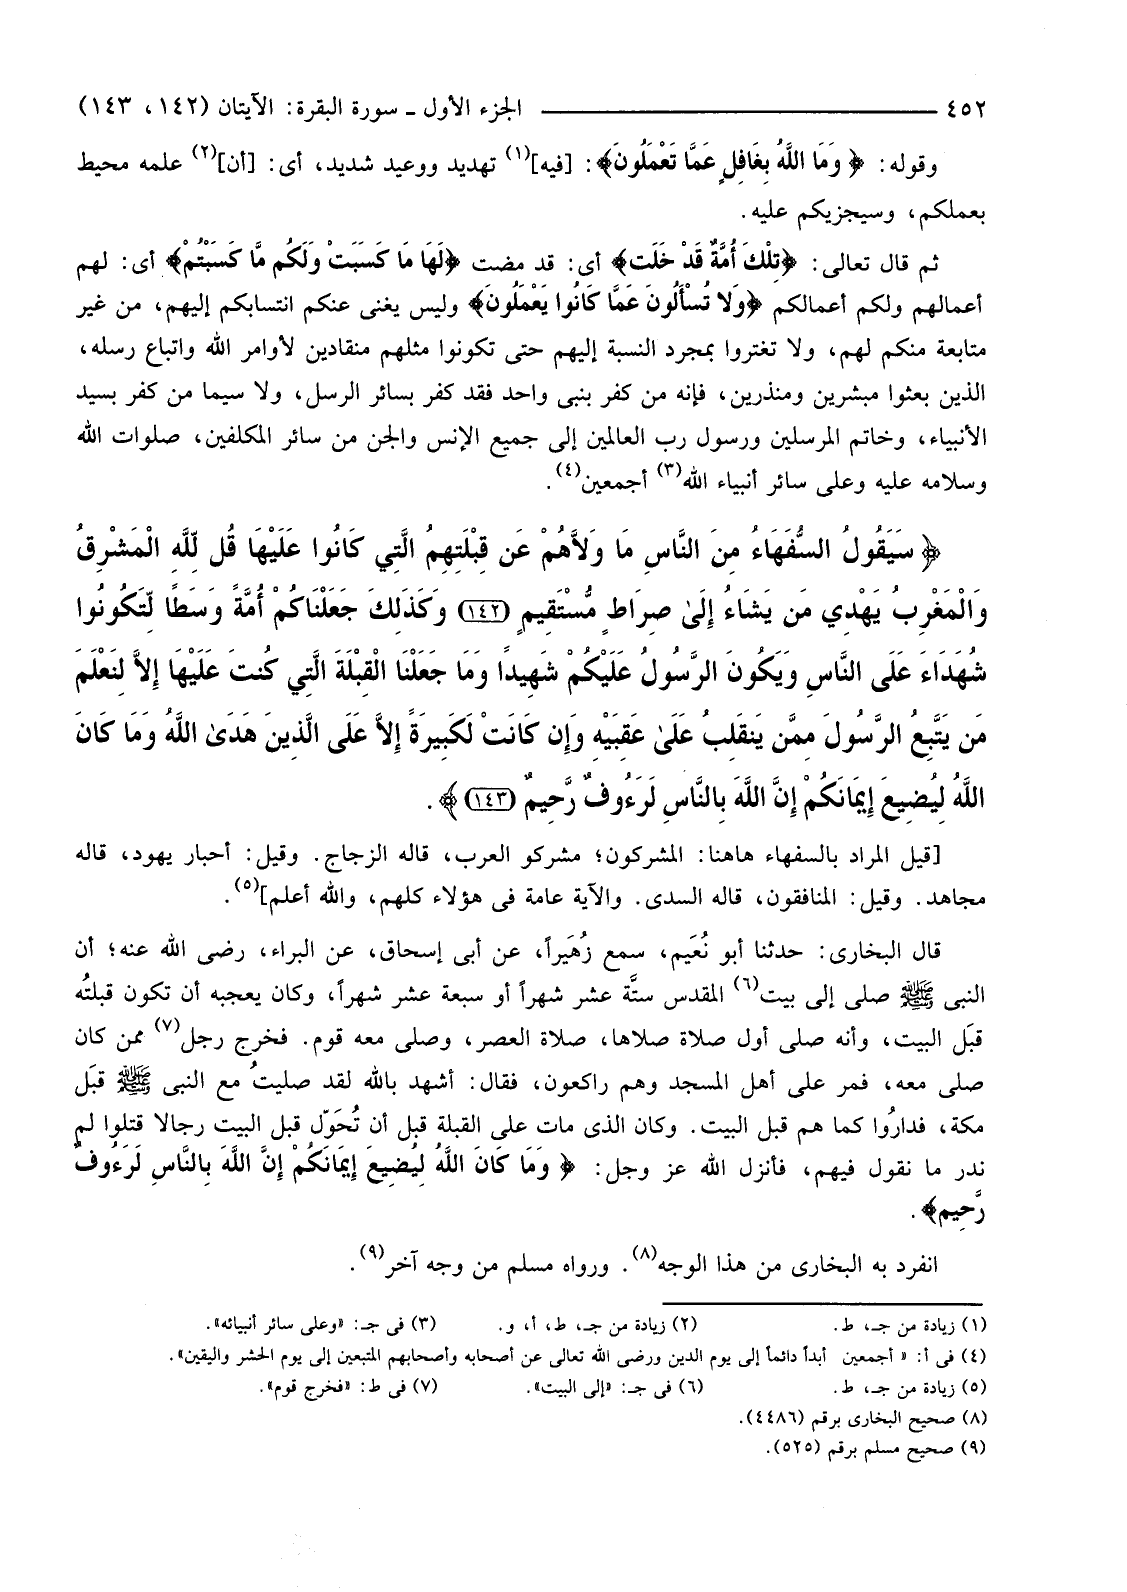 ٤٥٢ ــــــ الجزء الأول ـ سورة البقرة: الآيتان (١٤٢، ١٤٣)
وقوله: ﴿ وَمَا اللَّهُ بِغَافِلٍ عَمَّا تَعْمَلُونَ﴾: [فيه](١) تهديد ووعيد شديد، أى: [أن](٢) علمه محيط
بعملكم، وسيجزيكم عليه.
ثم قال تعالى: ﴿تِلْكَ أُمَّةٌ قَدْ خَلَت﴾ أى: قد مضت ﴿لَهَا مَا كَسَبَتْ وَلَكُم مَّا كَسَبْتُمْ﴾ أى: لهم
أعمالهم ولكم أعمالكم ﴿وَلا تُسْأَلُونَ عَمَّا كَانُوا يَعْمَلُونَ﴾ وليس يغنى عنكم انتسابكم إليهم، من غير
متابعة منكم لهم، ولا تغتروا بمجرد النسبة إليهم حتى تكونوا مثلهم منقادين لأوامر الله واتباع رسله،
الذين بعثوا مبشرين ومنذرين، فإنه من كفر بنبى واحد فقد كفر بسائر الرسل، ولا سيما من كفر بسيد
الأنبياء، وخاتم المرسلين ورسول رب العالمين إلى جميع الإنس والجن من سائر المكلفين، صلوات الله
وسلامه عليه وعلى سائر أنبياء الله(٣) أجمعين(٤).
﴿ سَيَقُولُ السُّفَهَاءُ مِنَ النَّاسِ مَا وَلاَّهُمْ عَن قِبْلَتِهِمُ الَّتِي كَانُوا عَلَيْهَا قُل لِّلَّهِ الْمَشْرِقُ
وَالْمَغْرِبُ يَهْدِي مَن يَشَاءُ إِلَىٰ صِرَاطٍ مُّسْتَقِيمٍ (١٤٢) وَكَذَلِكَ جَعَلْنَاكُمْ أُمَّةً وَسَطًا لِّتَكُونُوا
شُهَدَاءَ عَلَى النَّاسِ وَيَكُونَ الرَّسُولُ عَلَيْكُمْ شَهِيدًا وَمَا جَعَلْنَا الْقِبْلَةَ الَّتِي كُنتَ عَلَيْهَا إِلاَّ لِنَعْلَمَ
مَن يَتَّبِعُ الرَّسُولَ مِمَّن يَنقَلِبُ عَلَىٰ عَقِبَيْهِ وَإِن كَانَتْ لَكَبِيرَةً إِلاَّ عَلَى الَّذِينَ هَدَى اللَّهُ وَمَا كَانَ
اللَّهُ لِيُضِيعَ إِيمَانَكُمْ إِنَّ اللَّهَ بِالنَّاسِ لَرَءُوفٌ رَّحِيمٌ (١٤٣) ﴾.
[قيل المراد بالسفهاء هاهنا: المشركون؛ مشركو العرب، قاله الزجاج. وقيل: أحبار يهود، قاله
مجاهد. وقيل: المنافقون، قاله السدى. والآية عامة فى هؤلاء كلهم، والله أعلم](٥).
قال البخارى: حدثنا أبو نُعَيم، سمع زُهَيراً، عن أبى إسحاق، عن البراء، رضى الله عنه؛ أن
النبى ﷺ صلى إلى بيت(٦) المقدس ستَّة عشر شهراً أو سبعة عشر شهراً، وكان يعجبه أن تكون قبلتُه
قبَل البيت، وأنه صلى أول صلاة صلاها، صلاة العصر، وصلى معه قوم. فخرج رجل(٧) ممن كان
صلى معه، فمر على أهل المسجد وهم راكعون، فقال: أشهد بالله لقد صليتُ مع النبى ﷺ قبَل
مكة، فدارُوا كما هم قبل البيت. وكان الذى مات على القبلة قبل أن تُحَوّل قبل البيت رجالا قتلوا لم
ندر ما نقول فيهم، فأنزل الله عز وجل: ﴿ وَمَا كَانَ اللَّهُ لِيُضِيعَ إِيمَانَكُمْ إِنَّ اللَّهَ بِالنَّاسِ لَرَءُوفٌ
رَّحِيم﴾.
انفرد به البخارى من هذا الوجه(٨). ورواه مسلم من وجه آخر(٩).
(١) زيادة من جـ، ط. (٢) زيادة من جـ، ط، أ، و. (٣) فى جـ: «وعلى سائر أنبيائه».
(٤) فى أ: « أجمعين أبداً دائماً إلى يوم الدين ورضى الله تعالى عن أصحابه وأصحابهم المتبعين إلى يوم الحشر واليقين».
(٥) زيادة من جـ، ط. (٦) فى جـ: «إلى البيت». (٧) فى ط: «فخرج قوم».
(٨) صحيح البخارى برقم (٤٤٨٦).
(٩) صحيح مسلم برقم (٥٢٥).